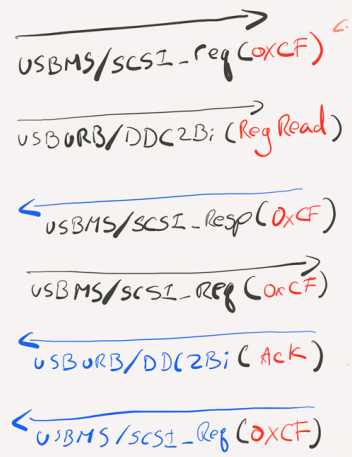 USBMS/SCSI_req(0XCF)
USBURB/DDC2Bi(Reg Read)
USBMS/SCSI_Resp(0xCF)
USBMS/SCSI_Req(0xCF)
USBURB/DDC2Bi(Ack)
USBMS/SCSI_Req(0XCF)